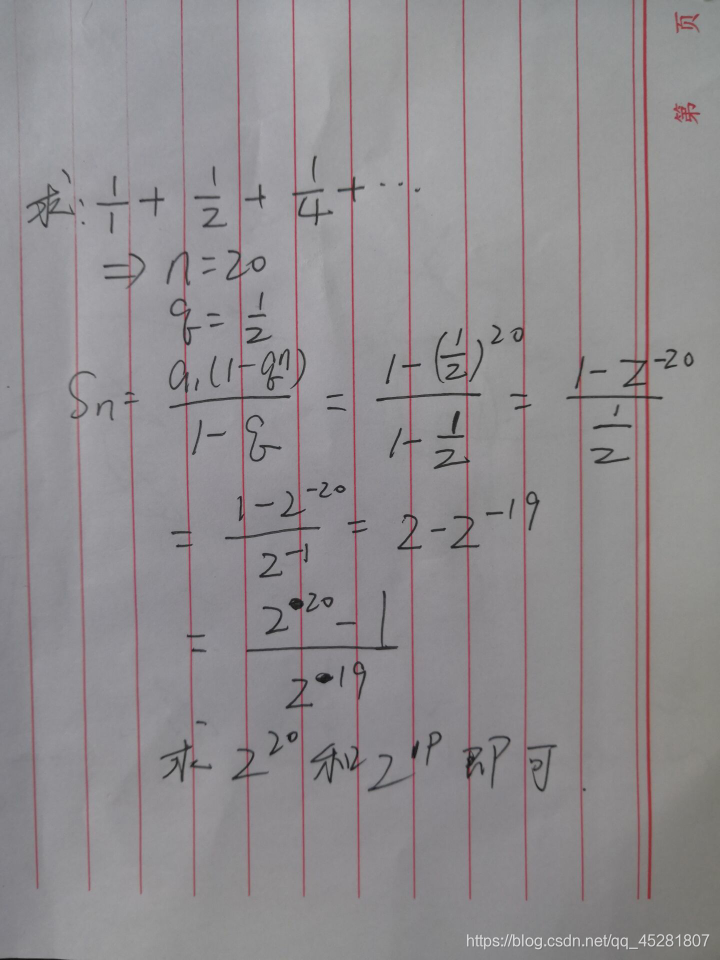 第 页
求: 1/1 + 1/2 + 1/4 + ...
⇒ n = 20
q = 1/2
Sn = a₁(1-qⁿ)/(1-q) = (1-(1/2)²⁰)/(1-1/2) = (1-2⁻²⁰)/(1/2)
= (1-2⁻²⁰)/2⁻¹ = 2-2⁻¹⁹
= (2²⁰-1)/2¹⁹
求 2²⁰ 和 2¹⁹ 即可.
https://blog.csdn.net/qq_45281807